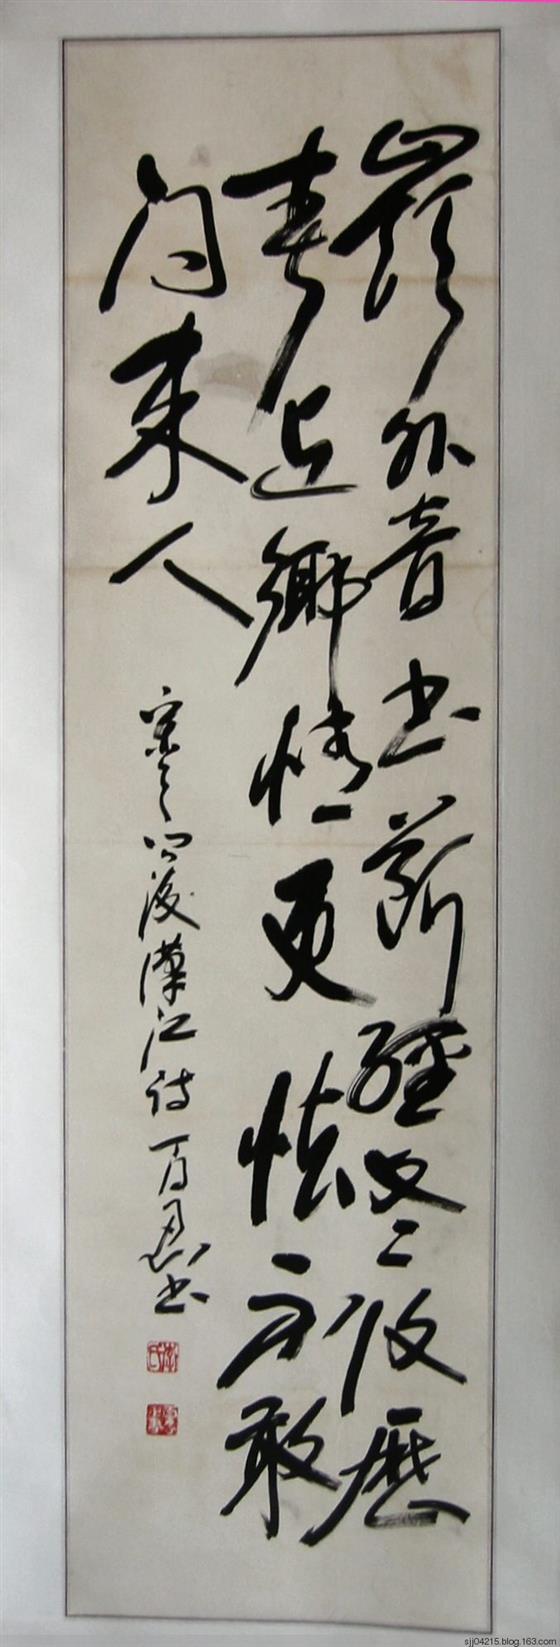 嶺外音书断經冬復歷
春近鄉情更怯不敢
问来人
宋之问渡漢江诗百忍书
sjj04215.blog.163.com